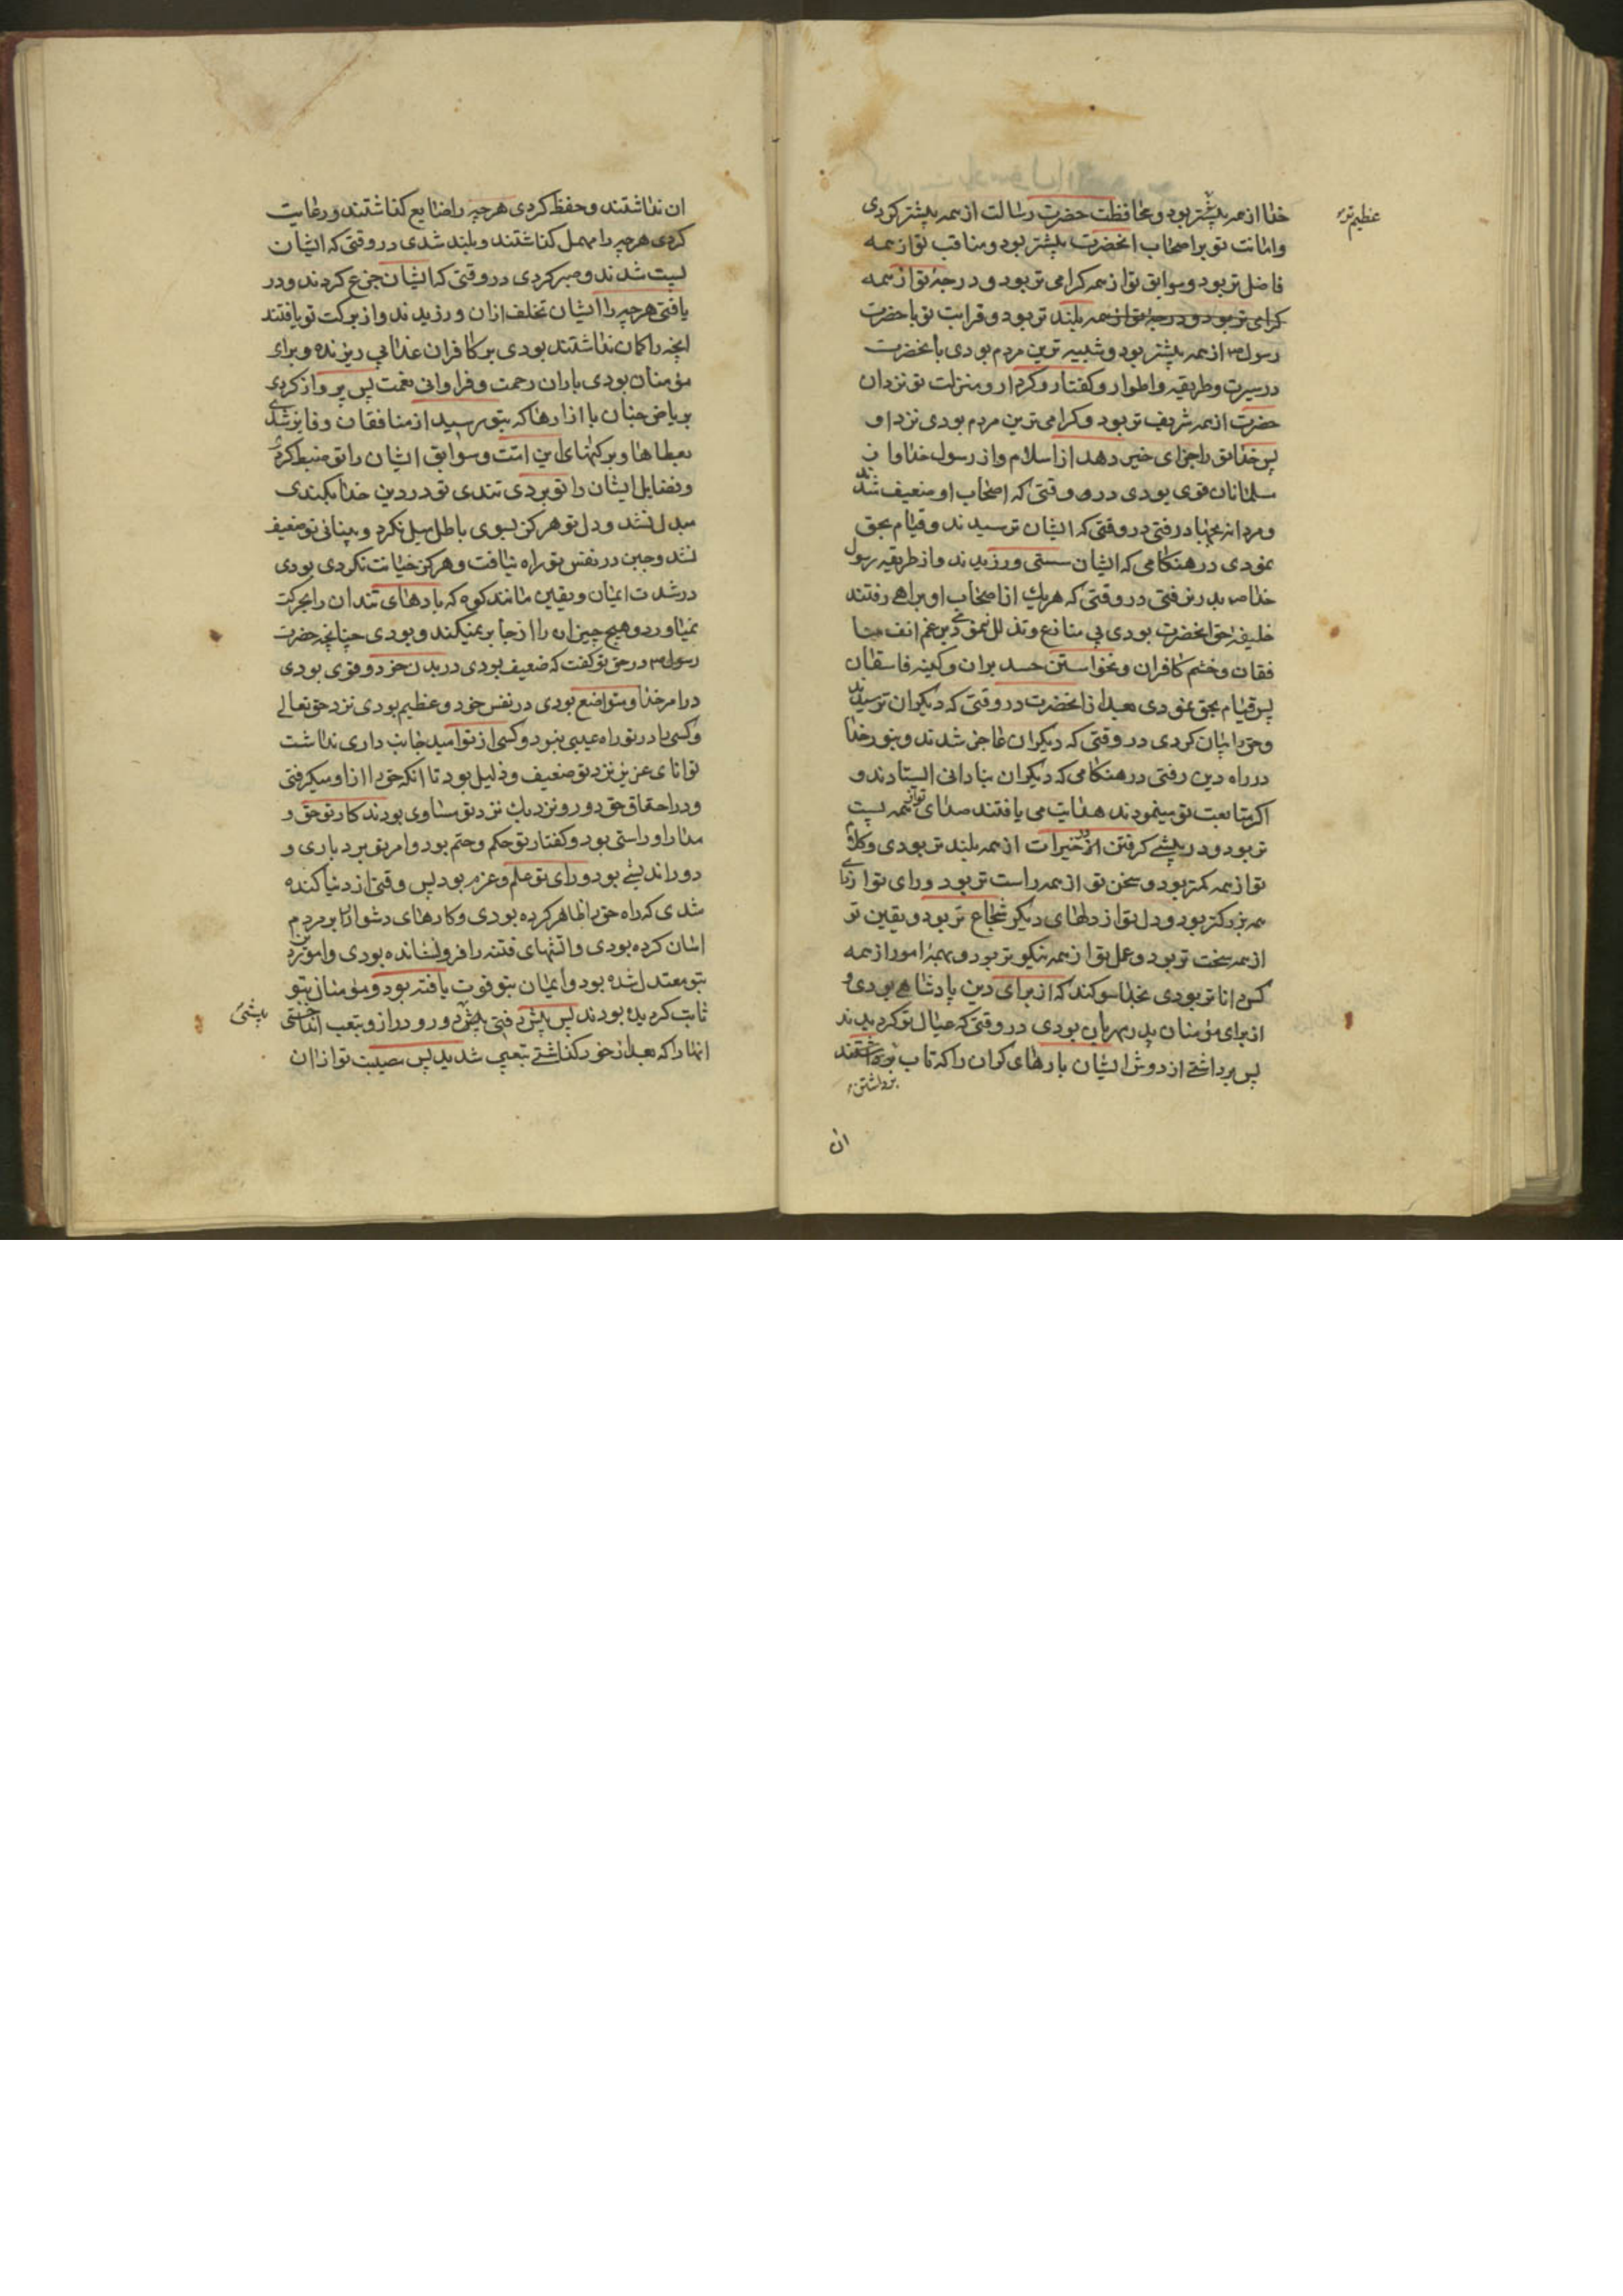 خدا از همه بیشتر بود و محافظت حضرت رسالت از همه بیشتر کردی
عظیم‌تر
و امانت تو بر اصحاب انحضرت بیشتر بود و مناقب تو از همه
فاضل تر بود و سوابق تو از همه کرامی تر بود و درجهٔ تو از همه
کرامی تر بود و درجهٔ تو از همه بلند تر بود و قرابت تو با حضرت
رسول ص از همه بیشتر بود و شبیه ترین مردم بودی بانحضرت
در سیرت و طریقه و اطوار و کفتار و کردار و منزلت تو نزد ان
حضرت از همه شریف تر بود و کرامی ترین مردم بودی نزد او
پس خدا تو را جزای خیر دهد از اسلام و از رسول خدا و از
مسلمانان قوی بودی در وقتی که اصحاب او ضعیف شدند
و مردانه بجهاد رفتی در وقتی که ایشان ترسیدند و قیام بحق
نمودی در هنکامی که ایشان سستی ورزیدند و از طریقه رسول
خدا ص بدر نرفتی در وقتی که هر یک از اصحاب او براهی رفتند
خلیفه حق انحضرت بودی بی منازع و تذلل ننمودی برغم انف منا
فقان و خشم کافران و نخواستن حسد بران و کینه فاسقان
پس قیام بحق نمودی بعد از انحضرت در وقتی که دیکران ترسیدند
و حق را بیان کردی در وقتی که دیکران عاجز شدند و بنور خدا
در راه دین رفتی در هنکامی که دیکران بنادانی ایستادند و
اکر متابعت تو مینمودند هدایت می یافتند صدای تو از همه پست
تر بود و در پیشی کرفتن در خیرات از همه بلند تر بودی و کلام
تو از همه کمتر بود و سخن تو از همه راست تر بود و رای تو از رای
همه بزرکتر بود و دل تو از دلهای دیکر شجاع تر بود و یقین تو
از همه سخت تر بود و عمل تو از همه نیکو تر بود و بهمهٔ امور از همه
کس دانا تر بودی بخدا سوکند که از برای دین پادشاهی بودی و
از برای مؤمنان پدر مهربان بودی در وقتی که عیال تو کردیدند
پس برداشتی از دوش ایشان بارهای کران را که تاب
برداشتن
ان
ان نداشتند و حفظ کردی هر چه را ضایع کذاشتند و رعایت
کردی هر چه را مهمل کذاشتند و بلند شدی در وقتی که ایشان
پست شدند و صبر کردی در وقتی که ایشان جزع کردند و در
یافتی هر چه را ایشان تخلف از ان ورزیدند و از برکت تو یافتند
انچه را کمان نداشتند بودی بر کافران عذابی ریزنده و برای
مؤمنان بودی باران رحمت و فراوانی نعمت پس پرواز کردی
بریاض جنان با ازارها که بتو رسید از منافقان و فایز شدی
بعطاها و برکتهای این امت و سوابق ایشان را تو ضبط کردی
و فضایل ایشان را تو بردی تندی تو در دین خدا بکندی
مبدل نشد و دل تو هرکز بسوی باطل میل نکرد و بینائی تو ضعیف
نشد و جبن در نفس تو راه نیافت و هرکز خیانت نکردی بودی
در شدت ایمان و یقین مانند کوه که بادهای تند ان را بحرکت
نمیاورد و هیچ چیز ان را از جا بر نمیکند و بودی چنانچه حضرت
رسول ص در حق تو کفت که ضعیف بودی در بدن خود و قوی بودی
در امر خدا و متواضع بودی در نفس خود و عظیم بودی نزد حق تعالی
و کسی را در تو راه عیبی نبود و کسی از تو امید جانب داری نداشت
توانای عزیز نزد تو ضعیف و ذلیل بود تا انکه حق را از او میکرفتی
و در احقاق حق دور و نزدیک نزد تو مساوی بودند کار تو حق و
مدارا و راستی بود و کفتار تو حکم و حتم بود و امر تو بردباری و
دور اندیشی بود و رای تو علم و عزم بود پس وقتی از دنیا کنده
شدی که راه حق را ظاهر کرده بودی و کارهای دشوار را بر مردم
اسان کرده بودی و اتشهای فتنه را فرو نشانده بودی و امور دین
بتو معتدل شده بود و ایمان بتو قوت یافته بود و مؤمنان بتو
ثابت کردیده بودند پس پیش رفتی پیشی دور و دراز و بتعب انداختی
پیشی
انها را که بعد از خود کذاشتی تعبی شدید پس مصیبت تو از ان